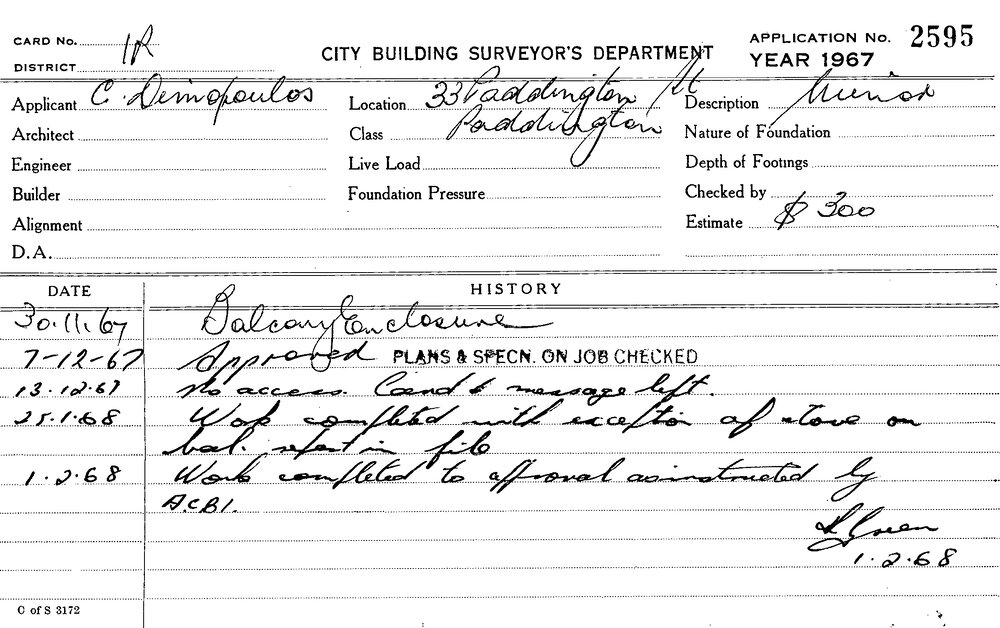 CARD No.
DISTRICT 1R
CITY BUILDING SURVEYOR'S DEPARTMENT
APPLICATION No. 2595
YEAR 1967
Applicant C. Dimopoulos
Location 33 Paddington St
Paddington
Description Minor
Architect
Class
Nature of Foundation
Engineer
Live Load
Depth of Footings
Builder
Foundation Pressure
Checked by
Alignment
Estimate $ 300
D.A.
DATE HISTORY
30.11.67 Balcony Enclosure
7-12-67 Approved PLANS & SPECN. ON JOB CHECKED
13.12.67 No access. Card & message left.
25.1.68 Work completed with exception of stove on
bal. report in file
1.2.68 Work completed to approval as instructed by
A.C.B.I.
Green
1.2.68
C of S 3172